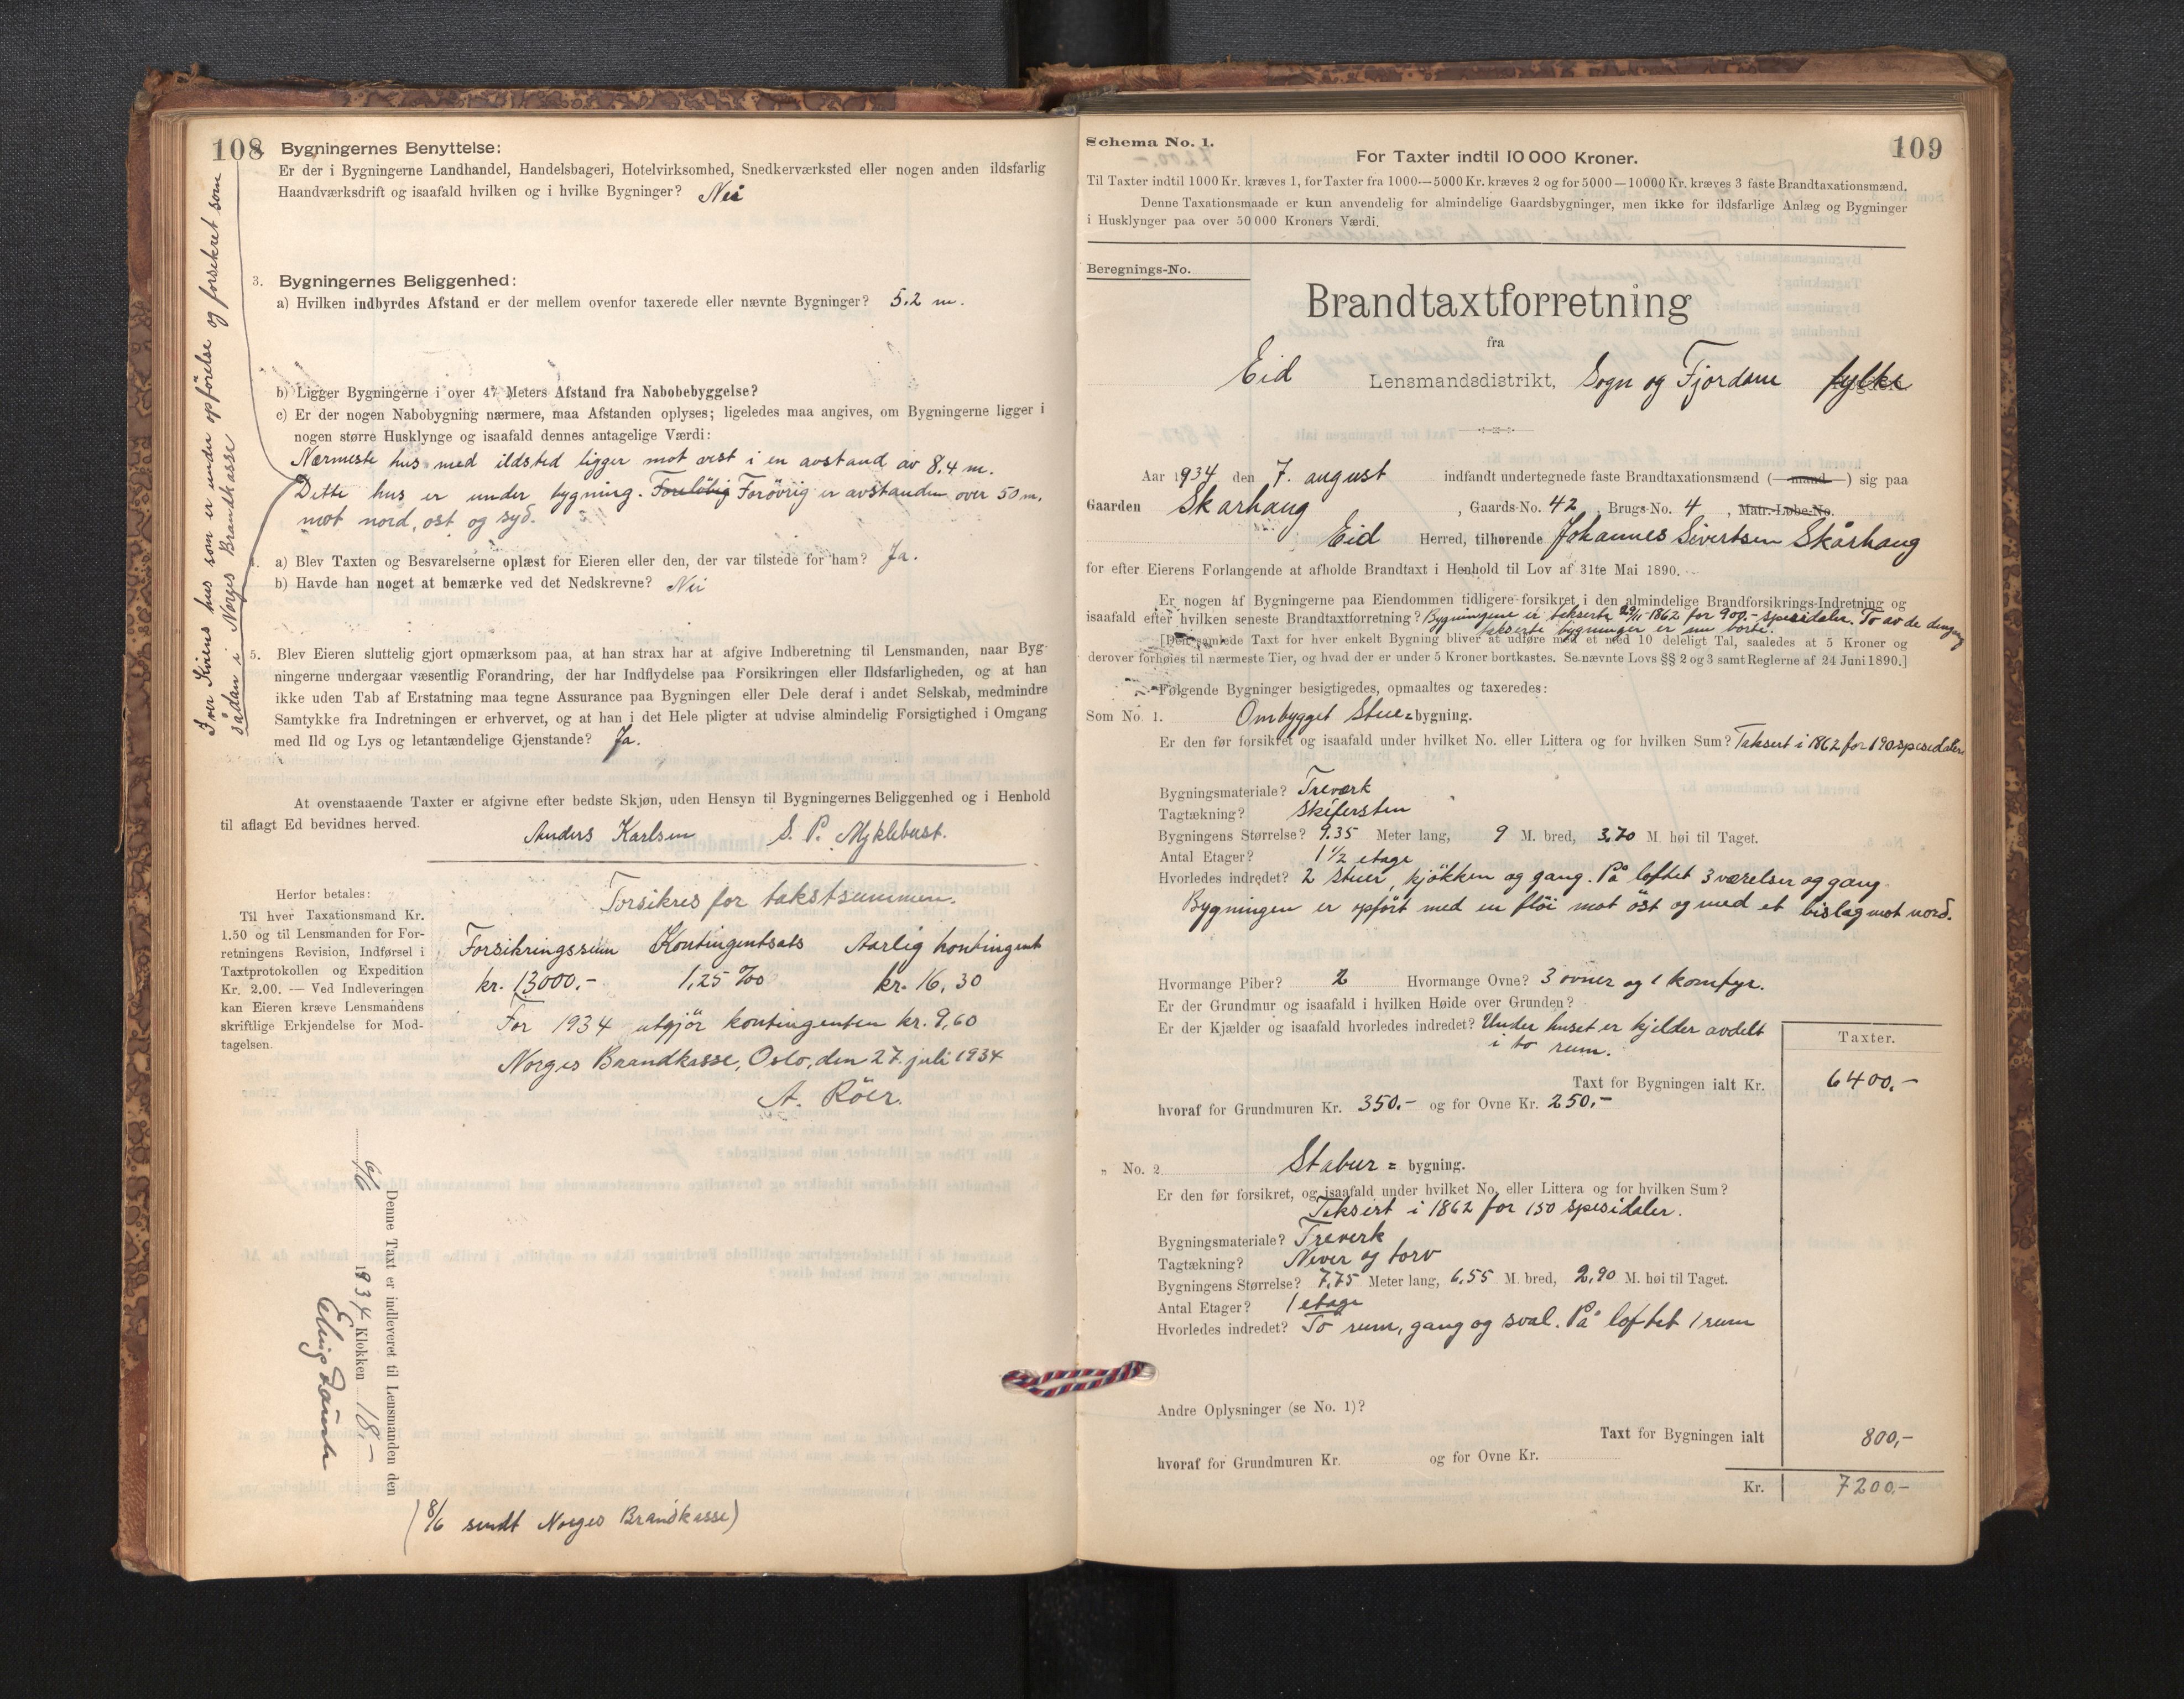 108
2. Bygningernes Benyttelse:
Er der i Bygningerne Landhandel, Handelsbageri, Hotelvirksomhed, Snedkerværksted eller nogen anden ildsfarlig
Haandværksdrift og isaafald hvilken og i hvilke Bygninger? Nei
3. Bygningernes Beliggenhed:
a) Hvilken indbyrdes Afstand er der mellem ovenfor taxerede eller nævnte Bygninger? 5,2 m.
b) Ligger Bygningerne i over 47 Meters Afstand fra Nabobebyggelse?
c) Er der nogen Nabobygning nærmere, maa Afstanden oplyses; ligeledes maa angives, om Bygningerne ligger i
nogen større Husklynge og isaafald dennes antagelige Værdi:
Nærmeste hus med ildsted ligger mot vest i en avstand av 8,4 m.
Dette hus er under bygning. Foreløbig Forøvrig er avstanden over 50 m.
mot nord, ost og syd.
Iver Sivers hus som er under opførelse og forsikret som
sådan i Norges Brandkasse
4. a) Blev Taxten og Besvarelserne oplæst for Eieren eller den, der var tilstede for ham? Ja.
b) Havde han noget at bemærke ved det Nedskrevne? Nei
5. Blev Eieren sluttelig gjort opmærksom paa, at han strax har at afgive Indberetning til Lensmanden, naar Byg-
ningerne undergaar væsentlig Forandring, der har Indflydelse paa Forsikringen eller Ildsfarligheden, og at han
ikke uden Tab af Erstatning maa tegne Assurance paa Bygningen eller Dele deraf i andet Selskab, medmindre
Samtykke fra Indretningen er erhvervet, og at han i det Hele pligter at udvise almindelig Forsigtighed i Omgang
med Ild og Lys og letantændelige Gjenstande? Ja.
At ovenstaaende Taxter er afgivne efter bedste Skjøn, uden Hensyn til Bygningernes Beliggenhed og i Henhold
til aflagt Ed bevidnes herved.
Anders Karlsen S. P. Myklebust.
Herfor betales:
Til hver Taxationsmand Kr.
1.50 og til Lensmanden for For-
retningens Revision, Indførsel i
Taxtprotokollen og Expedition
Kr. 2.00. — Ved Indleveringen
kan Eieren kræve Lensmandens
skriftlige Erkjendelse for Mod-
tagelsen.
Forsikres for takstsummen.
Forsikringssum Kontingentsats Aarlig kontingent
kr. 13000.- 1,25 ‰ kr. 16,30
For 1934 utgjör kontingenten kr. 9,60
Norges Brandkasse, Oslo, den 27. juli 1934
A. Röer.
Denne Taxt er indleveret til Lensmanden den
6/6 1934 Klokken 18,-
(8/6 sendt Norges Brandkasse)
Schema No. 1.
109
For Taxter indtil 10 000 Kroner.
Til Taxter indtil 1000 Kr. kræves 1, for Taxter fra 1000—5000 Kr. kræves 2 og for 5000—10000 Kr. kræves 3 faste Brandtaxationsmænd.
Denne Taxationsmaade er kun anvendelig for almindelige Gaardsbygninger, men ikke for ildsfarlige Anlæg og Bygninger
i Husklynger paa over 50 000 Kroners Værdi.
Beregnings-No.
Brandtaxtforretning
fra
Eid Lensmandsdistrikt, Sogn og Fjordane fylke
Aar 1934 den 7. august indfandt undertegnede faste Brandtaxationsmænd (—mand—) sig paa
Gaarden Skarhaug, Gaards-No. 42, Brugs-No. 4, Matr.-Løbe-No.
Eid Herred, tilhørende Johannes Sivertsen Skårhaug
for efter Eierens Forlangende at afholde Brandtaxt i Henhold til Lov af 31te Mai 1890.
Er nogen af Bygningerne paa Eiendommen tidligere forsikret i den almindelige Brandforsikrings-Indretning og
isaafald efter hvilken seneste Brandtaxtforretning? Bygningene er takserte 29/11-1862 for 900.- spesidaler. To av de dengang
takserte bygninger er nu borte.
[Den samlede Taxt for hver enkelt Bygning bliver at udføre med et med 10 deleligt Tal, saaledes at 5 Kroner og
derover forhøies til nærmeste Tier, og hvad der er under 5 Kroner bortkastes. Se nævnte Lovs §§ 2 og 3 samt Reglerne af 24 Juni 1890.]
Følgende Bygninger besigtigedes, opmaaltes og taxeredes:
Som No. 1. Ombygget Stue=bygning.
Er den før forsikret og isaafald under hvilket No. eller Littera og for hvilken Sum? Taksert i 1862 for 190 spesidaler
Bygningsmateriale? Treverk
Tagtækning? Skifersten
Bygningens Størrelse? 9.35 Meter lang, 9 M. bred, 3,70 M. høi til Taget.
Antal Etager? 1 1/2 etage
Hvorledes indredet? 2 stuer, kjøkken og gang. På loftet 3 værelser og gang
Bygningen er opført med en fløi mot øst og med et bislag mot nord.
Hvormange Piber? 2 Hvormange Ovne? 3 ovner og 1 komfyr.
Er der Grundmur og isaafald i hvilken Høide over Grunden?
Er der Kjælder og isaafald hvorledes indredet? Under huset er kjelder avdelt
i to rum.
Taxter.
Taxt for Bygningen ialt Kr. 6400,-
hvoraf for Grundmuren Kr. 350.- og for Ovne Kr. 250,-
„ No. 2 Stabur = bygning.
Er den før forsikret, og isaafald under hvilket No. eller Littera og for hvilken Sum?
Taksert i 1862 for 150 spesidaler.
Bygningsmateriale? Treverk
Tagtækning? Never og torv
Bygningens Størrelse? 7,75 Meter lang, 6,55 M. bred, 2,90 M. høi til Taget.
Antal Etager? 1 etage
Hvorledes indredet? To rum, gang og sval. På loftet 1 rum
Andre Oplysninger (se No. 1)?
Taxt for Bygningen ialt 800,-
hvoraf for Grundmuren Kr. og for Ovne Kr.
Kr. 7200,-